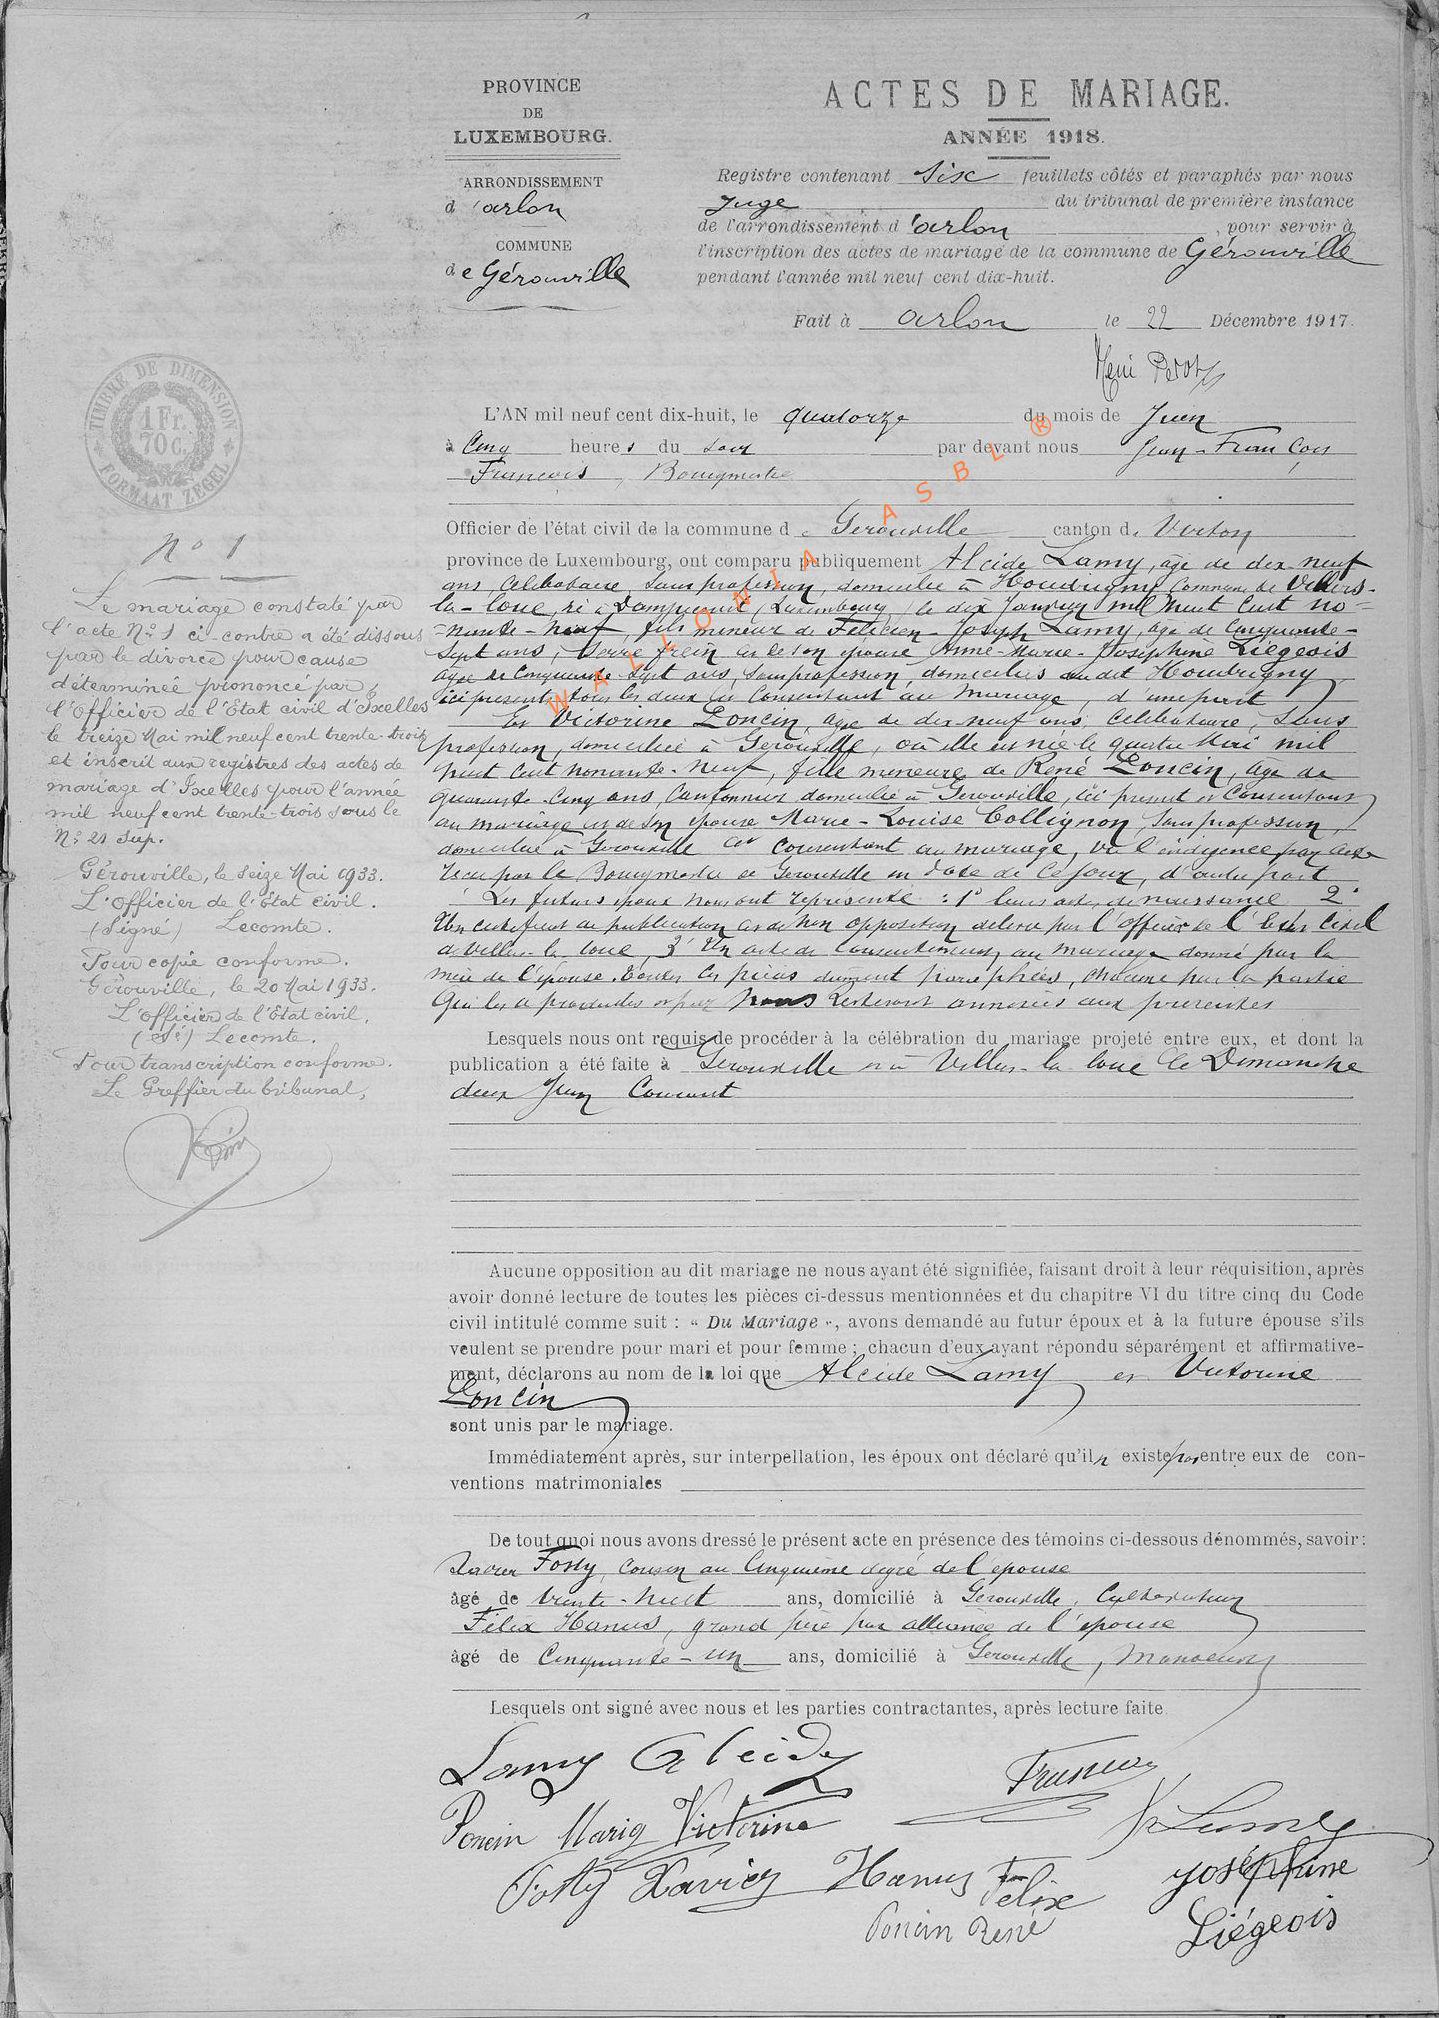 PROVINCE
DE
LUXEMBOURG.
ARRONDISSEMENT
d'arlon
COMMUNE
de Gérouville
ACTES DE MARIAGE.
ANNÉE 1918.
Registre contenant six feuillets côtés et paraphés par nous
Juge du tribunal de première instance
de l'arrondissement d'arlon, pour servir à
l'inscription des actes de mariage de la commune de Gérouville
pendant l'année mil neuf cent dix-huit.
Fait à Arlon le 22 Décembre 1917.
TIMBRE DE DIMENSION
1 Fr.
70 c.
FORMAAT ZEGEL
No 1
Le mariage constaté par
l'acte No 1 ci-contre a été dissous
par le divorce pour cause
déterminée prononcé par
l'Officier de l'Etat civil d'Ixelles
le treize Mai mil neuf cent trente-trois
et inscrit aux registres des actes de
mariage d'Ixelles pour l'année
mil neuf cent trente-trois sous le
No 21 Sup.
Gérouville, le seize Mai 1933.
L'officier de l'Etat civil.
(Signé) Lecomte.
Pour copie conforme.
Gérouville, le 20 Mai 1933.
L'officier de l'Etat civil,
(Sé) Lecomte.
Pour transcription conforme.
Le Greffier du tribunal,
L'AN mil neuf cent dix-huit, le quatorze du mois de Juin
à Cinq heures du soir par devant nous Jean-François
François, Bourgmestre
Officier de l'état civil de la commune de Gerouville canton de Virton
province de Luxembourg, ont comparu publiquement Alcide Lamy, age de dix neuf
ans, Celibataire, sans profession, domicilie à Houdrigny Commune de Villers-
la-loue, né à Dampicourt, Luxembourg, le dix Janvier mil huit Cent no=
=nante-neuf, fils mineur de Felicien-Joseph Lamy, age de Cinquante-
Sept ans, Serre frein et de son epouse Anne-Marie-Josephine Liegeois
agee de Cinquante Sept ans, sans profession, domicilies au dit Houdrigny
ici presents tous les deux et Consentant au mariage, d'une part
Et Victorine Poncin, agee de dix-neuf ans, Celibataire, Sans
profession, domiciliée à Gerouville, où elle est née le quatre Mai mil
huit Cent nonante-neuf, fille mineure de René Poncin, âge de
quarante-Cinq ans, Cantonnier domicilie à Gerouville, ici present et Consentant
au mariage et de son epouse Marie-Louise Collignon, Sans profession,
domiciliee à Gerouville et Consentant au mariage, vu l'indigence par acte
recu par le Bourgmestre de Gerouville en date de Ce jour, d'autre part
Les futurs epoux nous ont représenté : 1° leurs actes de naissance 2°
Un certificat de publication et de non opposition delivre par l'Officier de l'Etat Civil
de Villers-la loue, 3° Un acte de Consentement au mariage donné par la
mère de l'épouse. toutes les pieces dument paraphées, chacune par la partie
qui les a produites et par Nous resteront annexées aux presentes
Lesquels nous ont requis de procéder à la célébration du mariage projeté entre eux, et dont la
publication a été faite à Gerouville et à Villers-la loue le Dimanche
deux Juin Courant
Aucune opposition au dit mariage ne nous ayant été signifiée, faisant droit à leur réquisition, après
avoir donné lecture de toutes les pièces ci-dessus mentionnées et du chapitre VI du titre cinq du Code
civil intitulé comme suit : « Du Mariage », avons demandé au futur époux et à la future épouse s'ils
veulent se prendre pour mari et pour femme ; chacun d'eux ayant répondu séparément et affirmative-
ment, déclarons au nom de la loi que Alcide Lamy et Victorine
Poncin
sont unis par le mariage.
Immédiatement après, sur interpellation, les époux ont déclaré qu'il n existe pas entre eux de con-
ventions matrimoniales
De tout quoi nous avons dressé le présent acte en présence des témoins ci-dessous dénommés, savoir :
Xavier Fosty, cousin au Cinquième degré de l'epouse
âgé de trente-huit ans, domicilié à Gerouville, Cultivateur
Félix Hanus, grand père par alliance de l'epouse
âgé de Cinquante-un ans, domicilié à Gerouville, Manoeuvre
Lesquels ont signé avec nous et les parties contractantes, après lecture faite.
Lamy Alcide
François
Poncin Maria Victorine
Lamy
Fosty Xavier Hanus Félix
Joséphine
Liégeois
Poncin René
WALLONIA ASBL ®